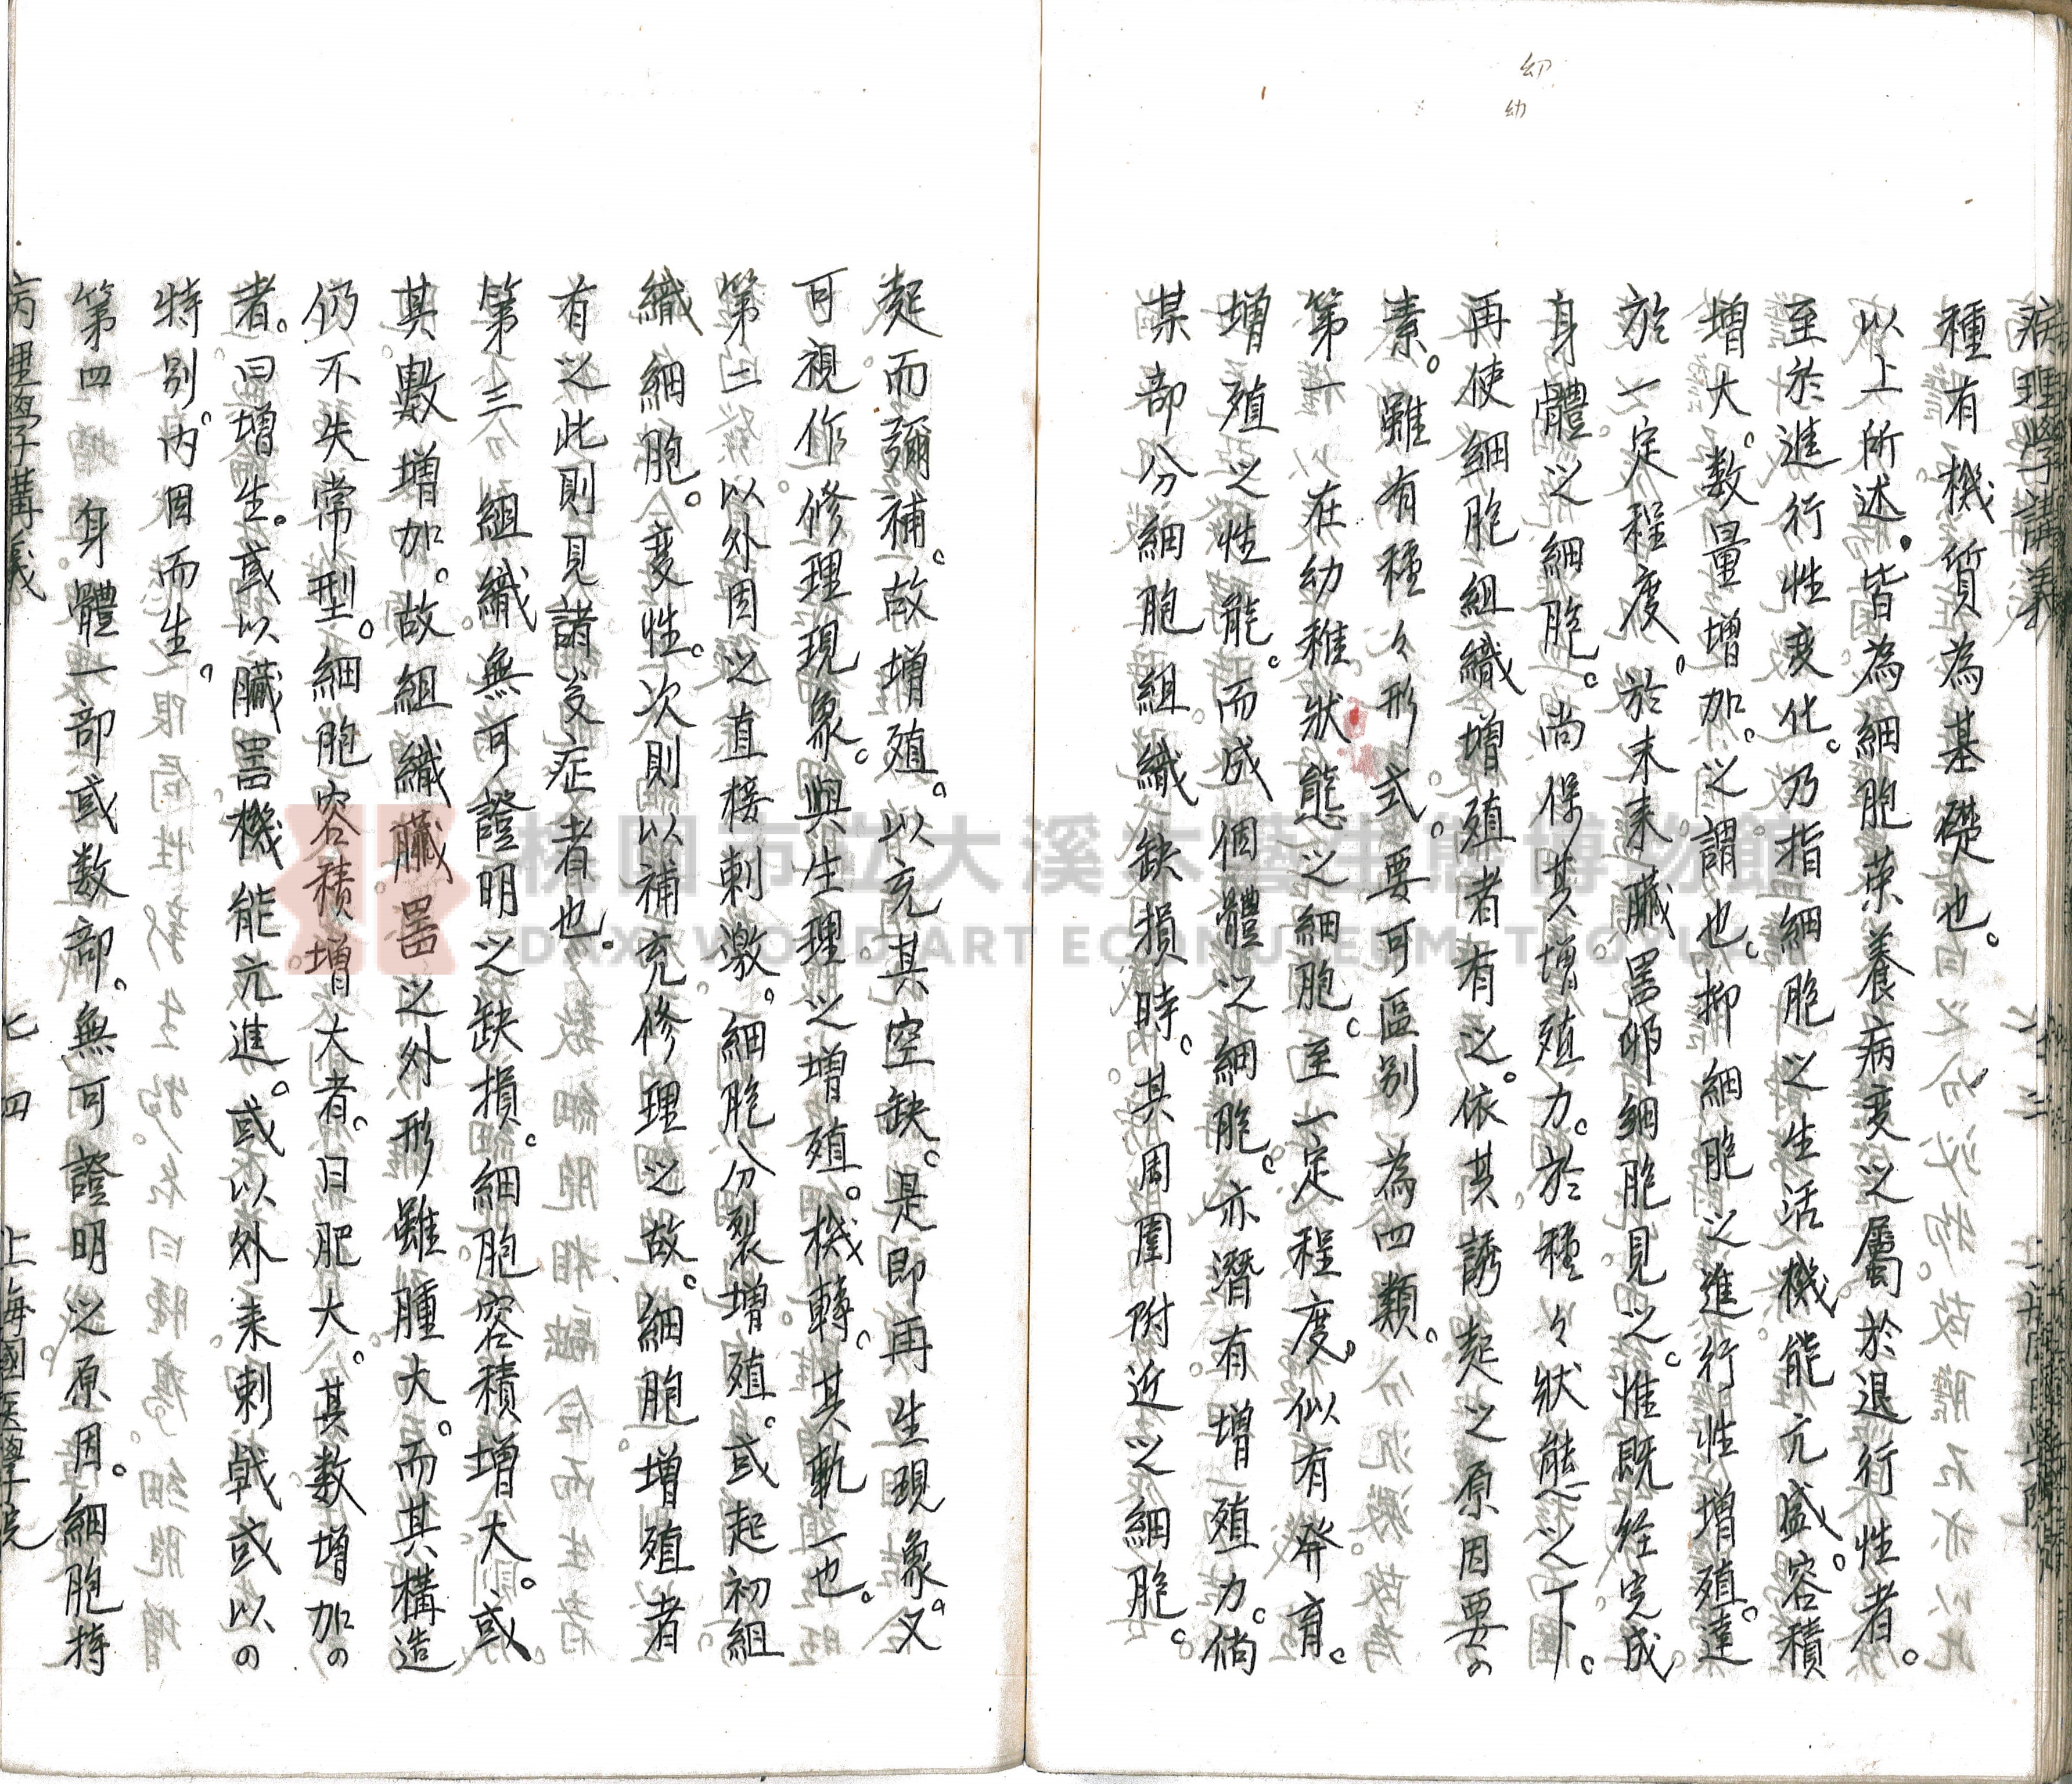 幼
幼
病理學講義
種有機質為基礎也。
以上所述。皆為細胞荣養病変之屬於退行性者。
至於進行性変化。乃指細胞之生活機能亢盛。容積
增大。数量增加。之謂也。抑細胞之進行性增殖。達
於一定程度。於末来臟噐卵細胞見之。惟既経完成
身體之細胞。尚保其增殖力。於種々狀態之下。
再使細胞組織增殖者有之。依其誘起之原因要の
素。雖有種々形式。要可區别為四類。
第一 在幼稚狀態之細胞。至一定程度。似有発育。
增殖之性能。而成個體之細胞。亦潛有增殖力。倘
某部分細胞組織缺損時。其周圍附近之細胞。
起而彌補。故增殖。以充其空缺。是即再生現象。又
可視作修理現象。與生理之增殖。機轉。其軌一也。
第二 以外因之直接刺激。細胞分裂增殖。或起初組
織細胞。変性。次則以補充修理之故。細胞增殖者
有之此則見諸炎症者也。
第三 組織無可證明之缺損。細胞容積增大。或
其數增加。故組織臟噐之外形雖腫大。而其構造
仍不失常型。細胞容積增大者。曰肥大。其数增加の
者。曰增生。或以臟噐機能亢進。或以外来刺戟或以の
特别。内因而生。
第四 身體一部或数部。無可證明之原因。細胞持
病理學講義 七四 上海國医學院
桃園市立大溪木藝生態博物館
DAXI WOOD ART ECOMUSEUM, TAOYUAN